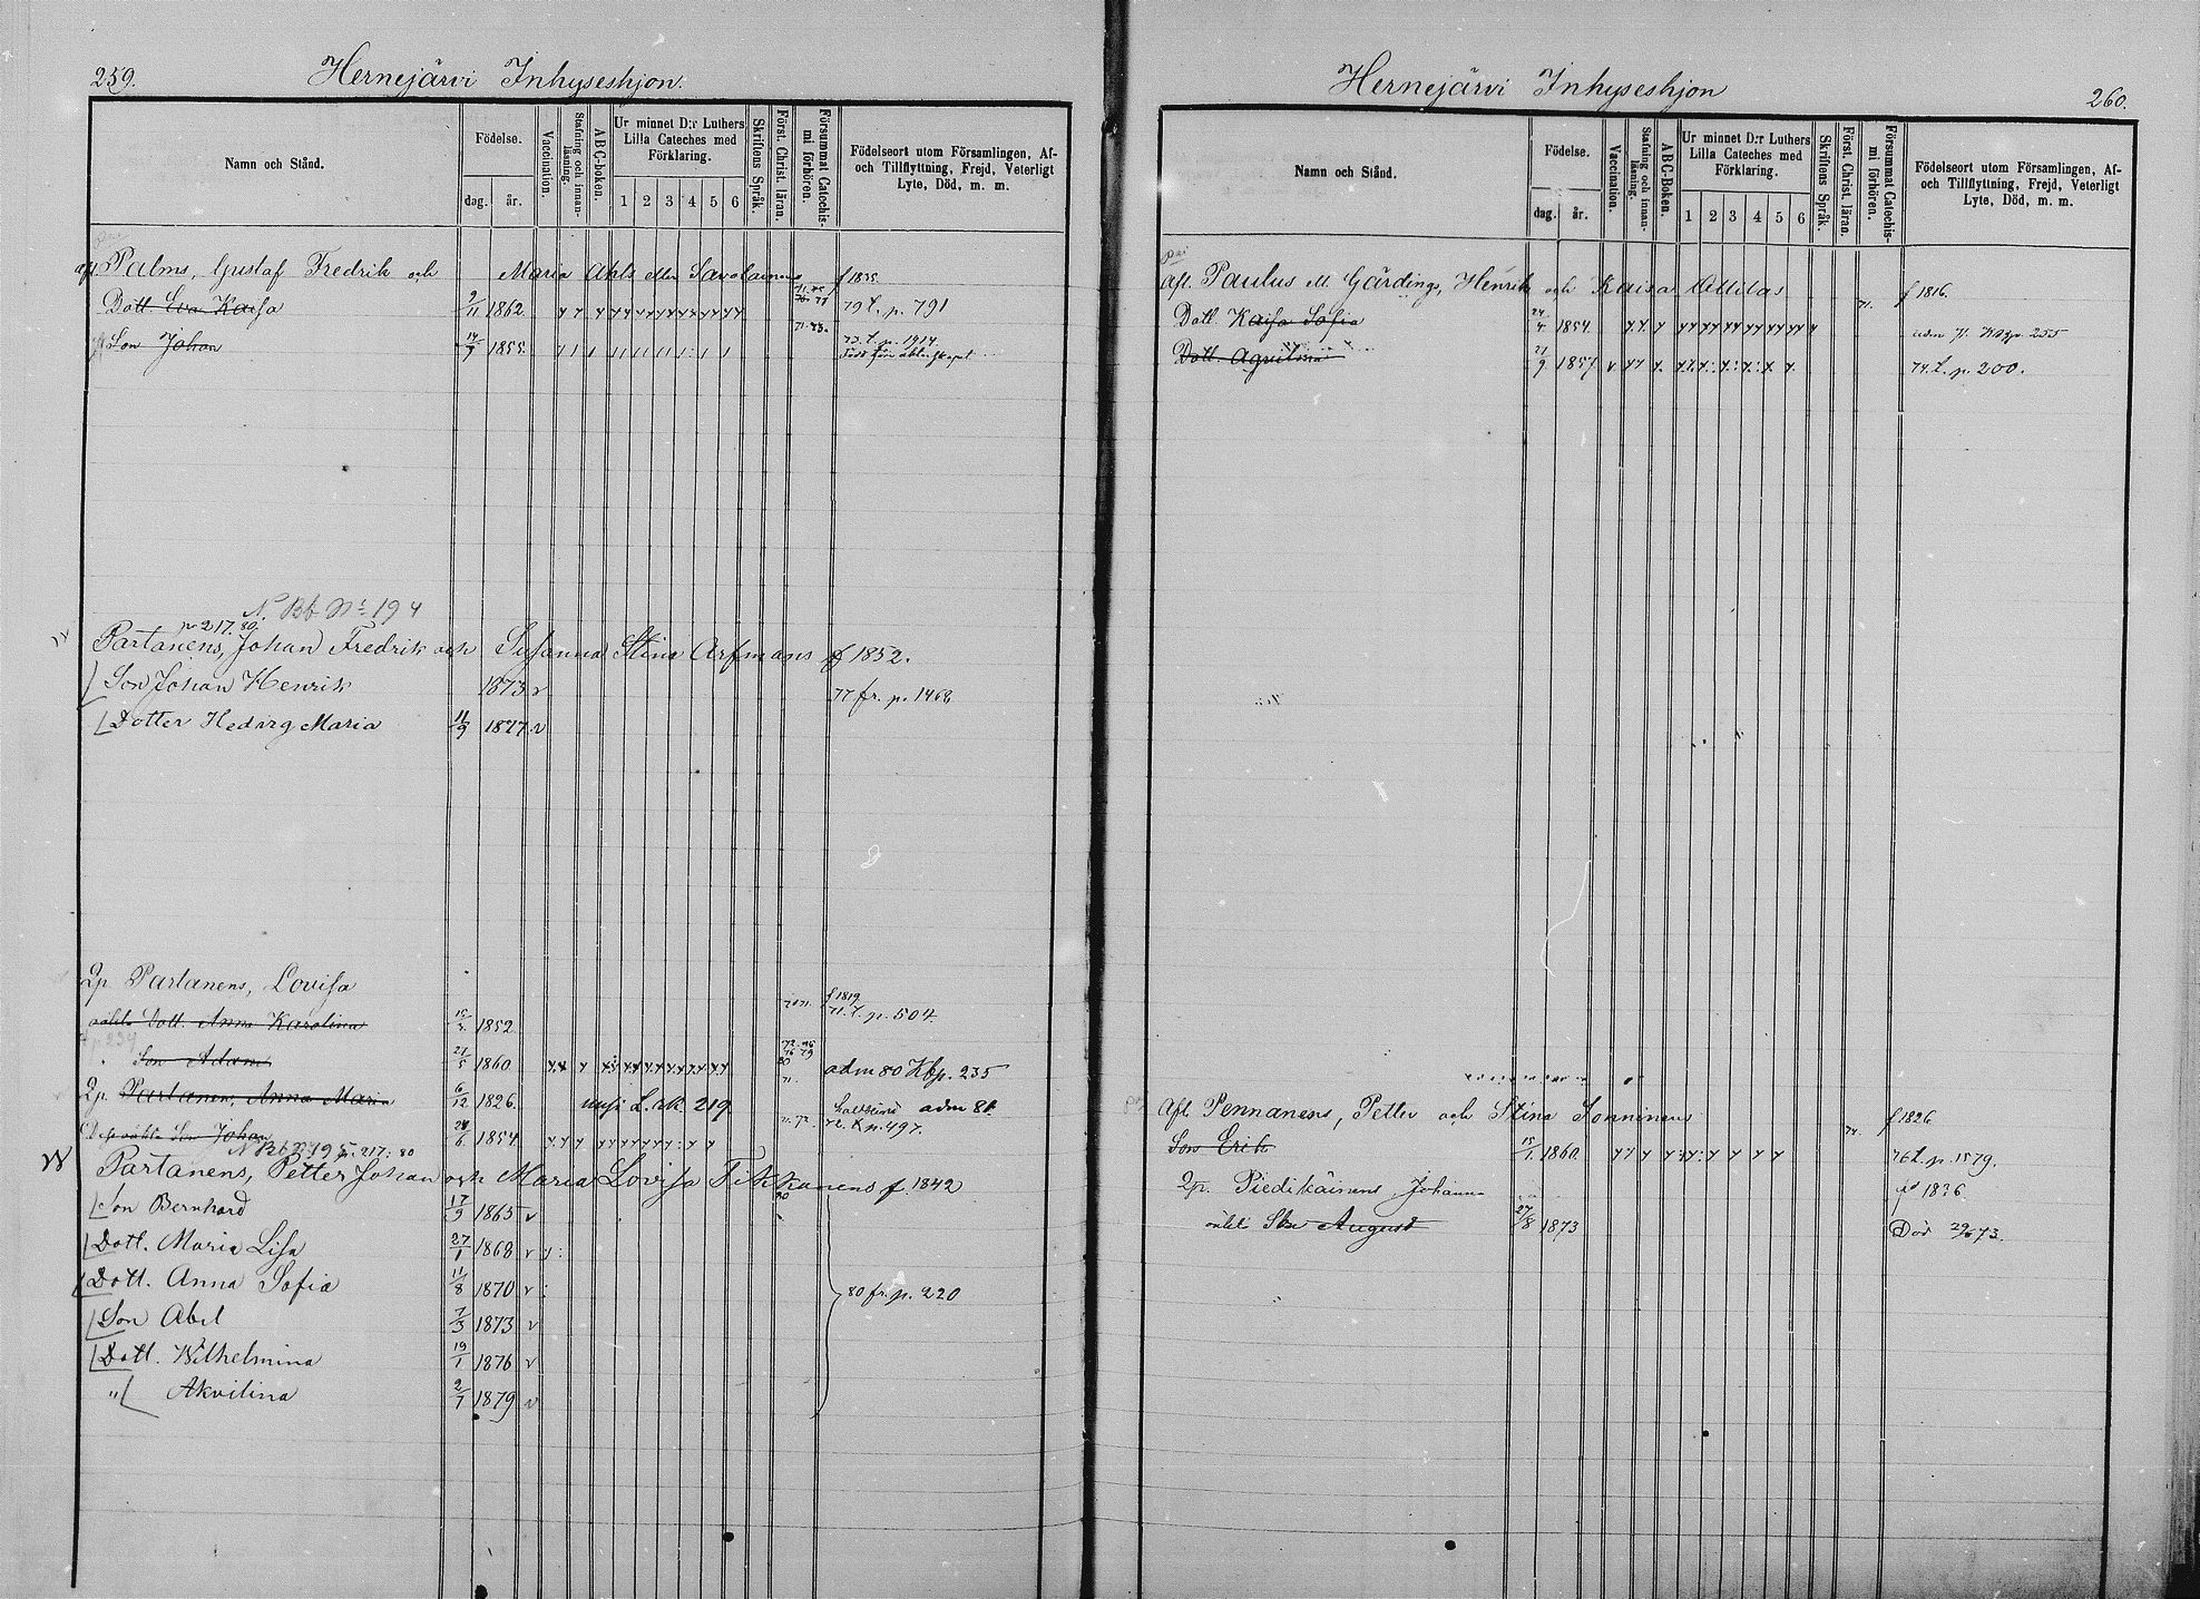 259.
Hernejärvi Inhyseshjon.
Namn och Stånd.
Födelse.
dag.
år.
Vaccination.
Stafning och innan-läsning.
ABC-boken.
Ur minnet D:r Luthers Lilla Cateches med Förklaring.
1 2 3 4 5 6
Skriftens Språk.
Först. Christ. läran.
Försummat Catechis-mi förhören.
Födelseort utom Församlingen, Af- och Tillflyttning, Frejd, Veterligt Lyte, Död, m. m.
afl Palms, Gustaf Fredrik och Maria Ahls eller Savolainens f 1835.
Dott. Eva Kaisa 9/11 1862 79 t. p. 791
Son Johan 14/9 1855 73. t. p. 1914
N Bb No 194
p 217. 80.
Partanens, Johan Fredrik och Susanna Stina Arfmans f 1852.
Son Johan Henrik 1873 v 77 fr. p. 1468
Dotter Hedvig Maria 11/9 1877 v
Qp Partanens, Lovisa f 1819
oäkta Dott. Anna Karolina 1852. 71. t. p. 504.
Son Adam 21/5 1860 adm 80 Kbp. 235
Qp. Partanen, Anna Maria 6/12 1826. adm 81.
Dess oäkta Son Johan 1854. 72. t p. 497.
N Bb No 195. 217: 80
Partanens, Petter Johan och Maria Lovisa Tikkanens f. 1842
Son Bernhard 17/9 1865 v
Dott. Maria Lisa 27/1 1868 v
Dott. Anna Sofia 11/8 1870 v 80 fr. p. 220
Son Abel 7/3 1873 v
Dott. Wilhelmina 19/1 1876 v
" Akvilina 2/7 1879 v
Hernejärvi Inhyseshjon
260.
Namn och Stånd.
Födelse.
dag.
år.
Vaccination.
Stafning och innan-läsning.
ABC-Boken.
Ur minnet D:r Luthers Lilla Cateches med Förklaring.
1 2 3 4 5 6
Skriftens Språk.
Först. Christ. läran.
Försummat Catechis-mi förhören.
Födelseort utom Församlingen, Af- och Tillflyttning, Frejd, Veterligt Lyte, Död, m. m.
afl. Paulus ell. Gärdings, Henrik och Kaisa Attilas 71. f 1816.
Dott. Kaisa Sofia 24/4 1854. adm 71. Kbp. 255
Dott. Aquilina 21/9 1857 74. t. p. 200.
Afl Pennanens, Petter och Stina Sonninens 74. f 1826
Son Erik 15/1 1860. 76 t. p. 1579.
Qp. Piedikäinens Johanna 1836.
oäkt Son August 27/8 1873 Död 29/8 73.